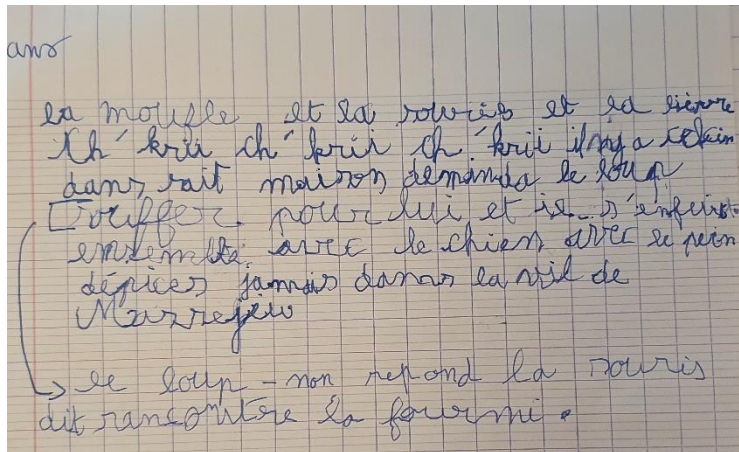 ans
la moufle et la souris et la lièvre
Ch'krii ch'krii ch'krii ilny a
dans sait maison demanda le loup
pour lui et
ensemble avec le chien avec le pein
dépices jamais dans la vil de
le loup - non repond la souris
dit rancontre la fourmi.